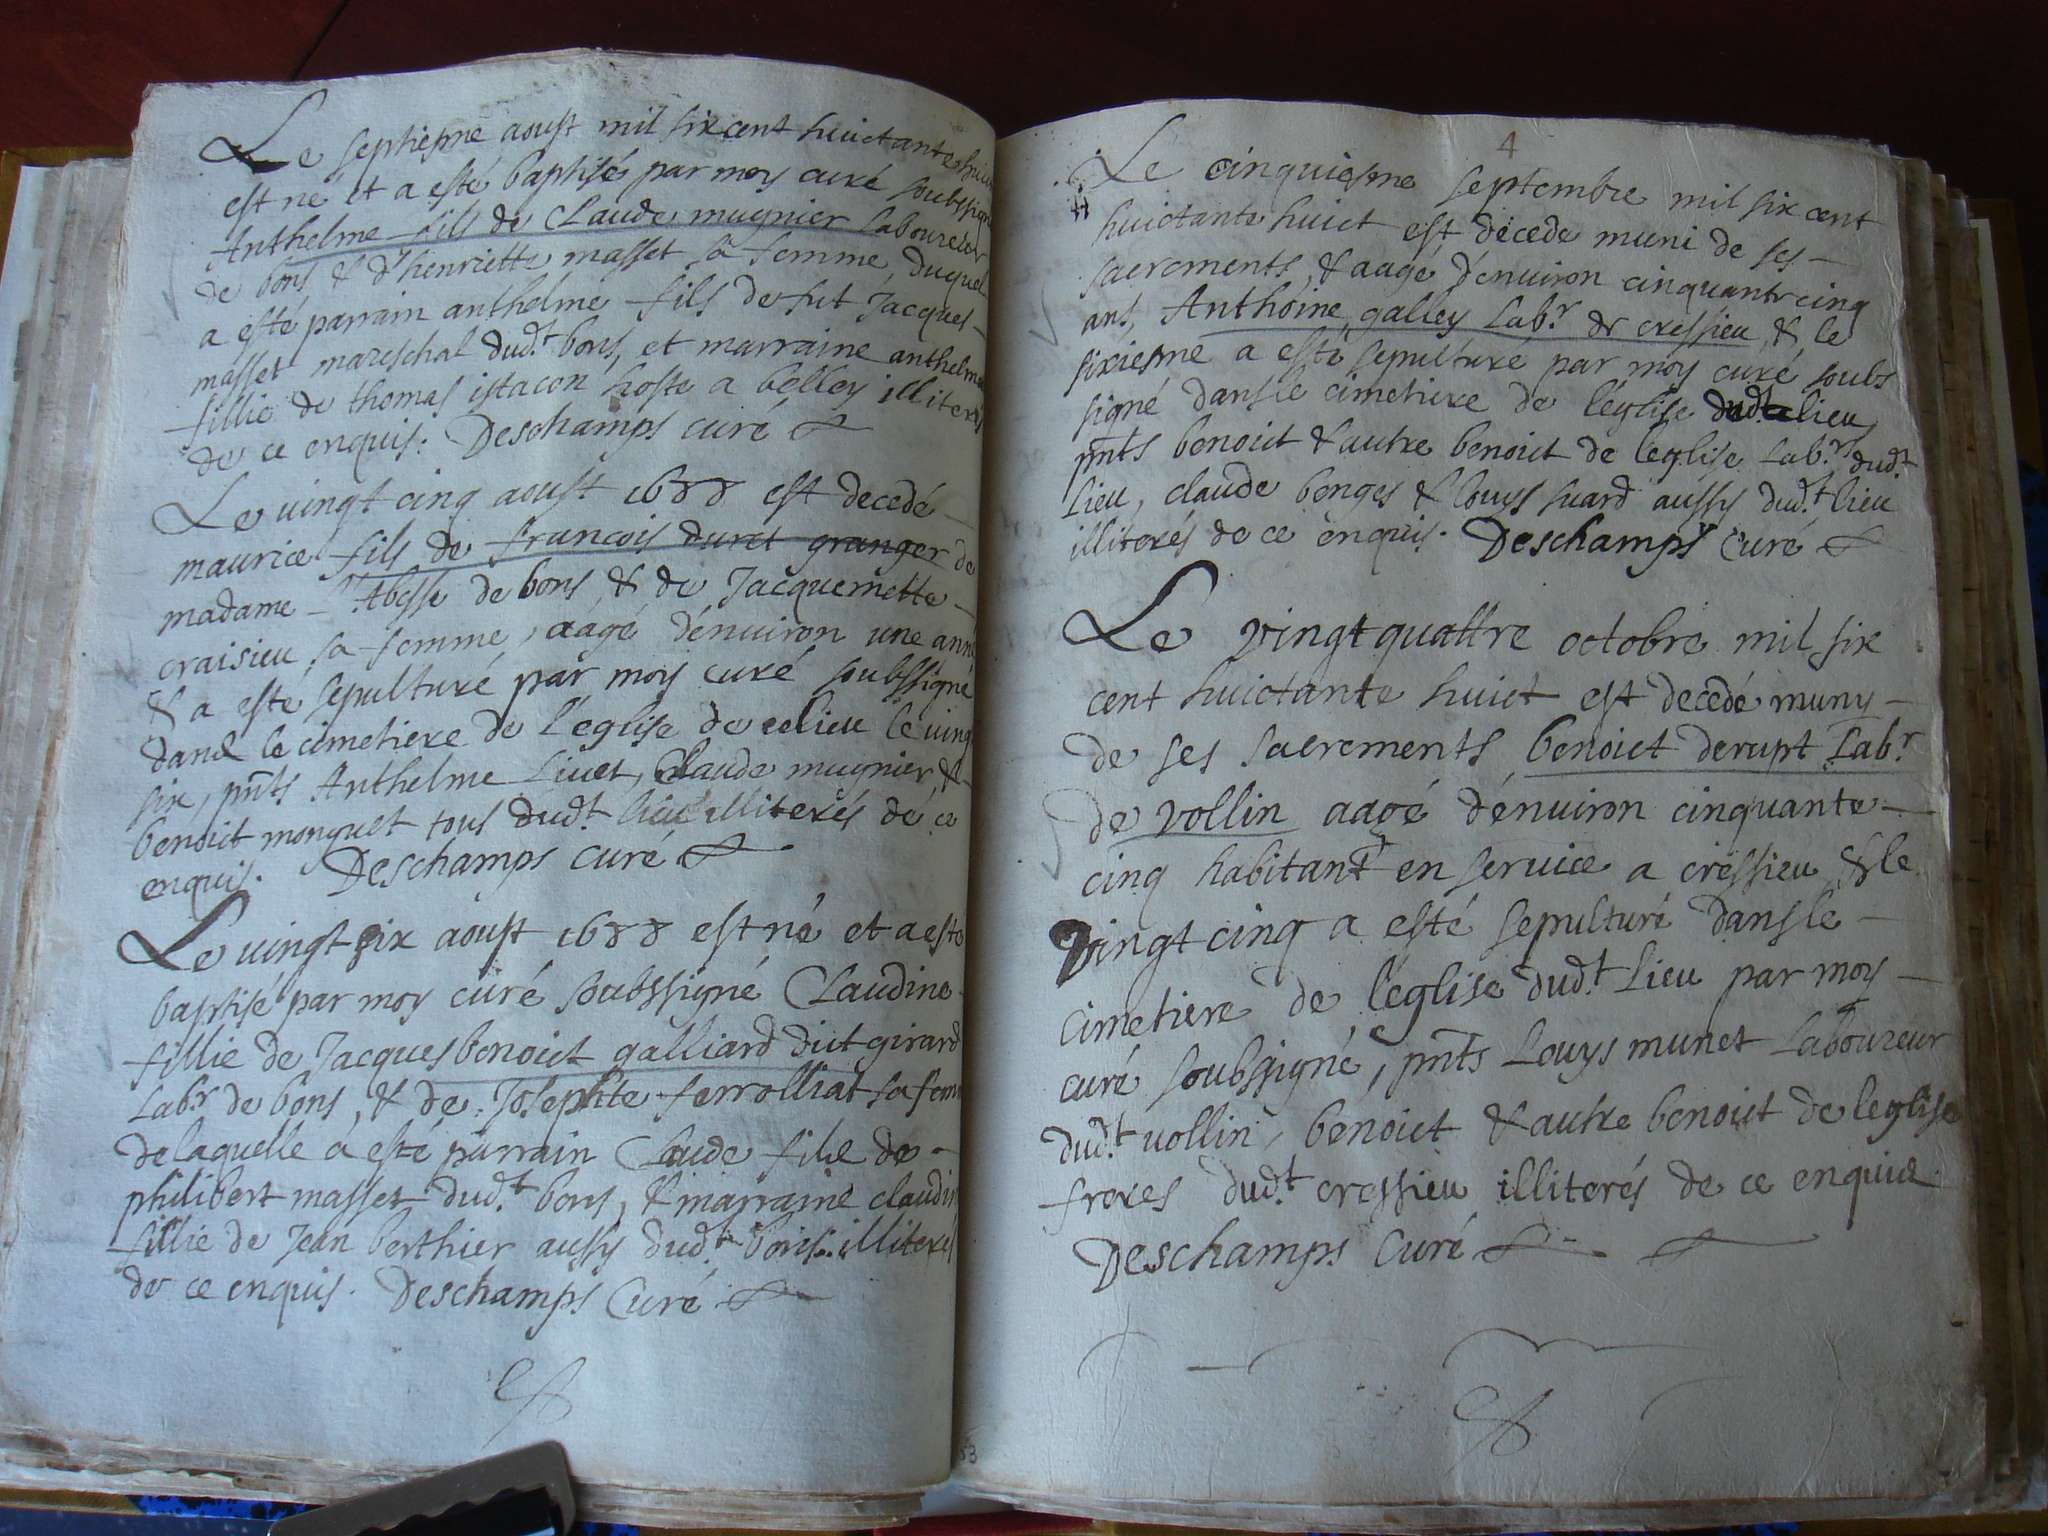 Le septiesme aoust mil six cent huictante huict
est né et a esté baptisé par moy curé soubssigné
Anthelme fils de Claude mugnier laboureur
de bons & d'henriette masset sa femme, duquel
a esté parrain anthelme fils de fut Jacques
masset mareschal dud.t bons, et marraine anthelme
fillie de thomas istacon hoste a belley illiterés
de ce enquis. Deschamps curé
Le vingt cinq aoust 1688 est decedé
maurice fils de francois duret granger de
madame l'Abesse de bons, & de Jacquemette
craisieu sa femme, aagé d'enuiron une année
& a esté sepulturé par moy curé soubssigné
dans le cimetiere de l'église de ce lieu le vingt
six, pnts Anthelme Liuet, Claude mugnier &
benoict monguet tous dud.t lieu illiterés de ce
enquis. Deschamps curé
Le vingt six aoust 1688 est né et a esté
baptisé par moy curé soubssigné Claudine
fillie de Jacques benoict galliard dict girard
Lab.r de bons, & de Josephte ferrolliat sa femme
de laquelle a esté parrain Claude fils de
philibert masset dud.t bons, & marraine claudine
fillie de Jean berthier aussy dud.t bons illiterés
de ce enquis. Deschamps Curé
53
4
Le cinquiesme septembre mil six cent
huictante huict est décedé muni de ses
sacrements, & aagé d'enuiron cinquante cinq
ans, Anthoine galley Lab.r de cressieu, & le
sixiesme a esté sepulturé par moy curé soubs
signé dans le cimetiere de l'église dud.t lieu,
pnts benoict & autre benoict de leglise Lab.rs dud.t
lieu, claude benges & louys suard aussy dud.t lieu
illiterés de ce enquis. Deschamps Curé
Le vingt quattre octobre mil six
cent huictante huict est decedé muny
de ses sacrements benoict derupt Lab.r
de vollin aagé d'enuiron cinquante
cinq habitant en seruice a cressieu & le
vingt cinq a esté sepulturé dans le
cimetiere de l'église dud.t Lieu par moy
curé soubssigné, pnts Louys munet Laboureur
dud.t vollin, benoict & autre benoict de leglise
freres dud.t cressieu illiterés de ce enquis
Deschamps Curé